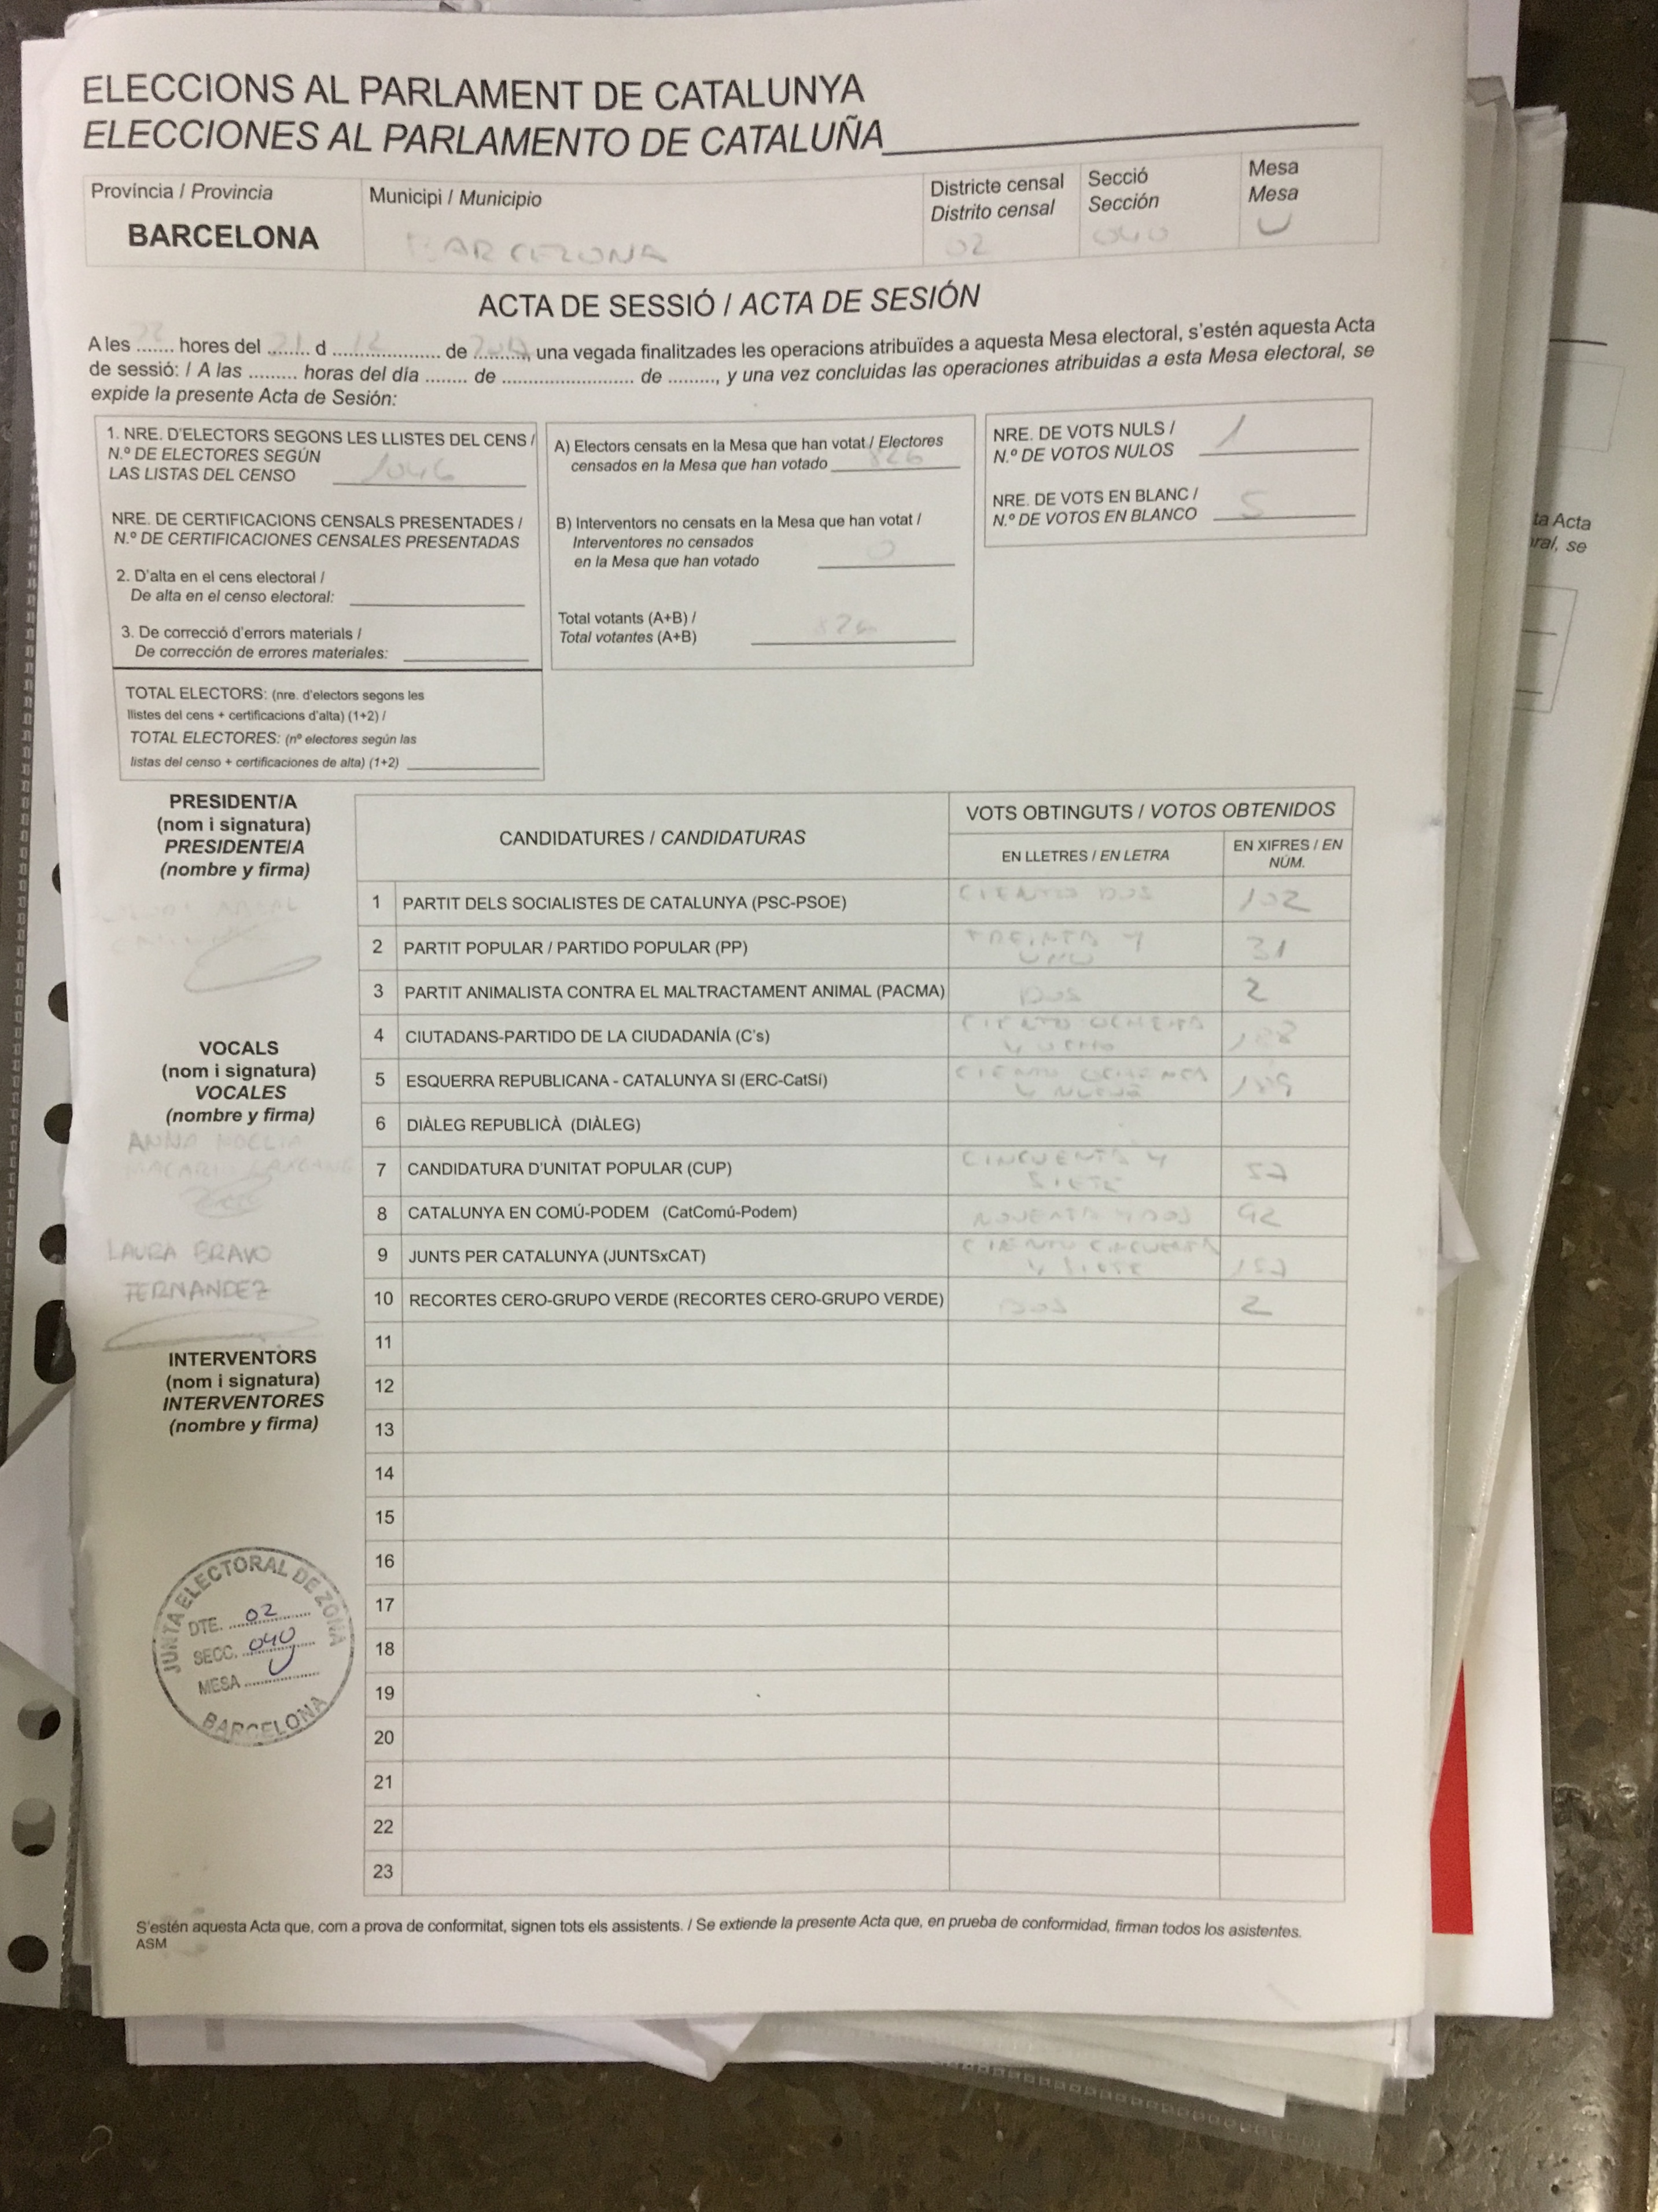 ELECCIONS AL PARLAMENT DE CATALUNYA
ELECCIONES AL PARLAMENTO DE CATALUÑA
Província / Provincia
BARCELONA
Municipi / Municipio
BARCELONA
Districte censal
Distrito censal
02
Secció
Sección
040
Mesa
Mesa
U
ACTA DE SESSIÓ / ACTA DE SESIÓN
A les 22 hores del 21 d 12 de 2017, una vegada finalitzades les operacions atribuïdes a aquesta Mesa electoral, s'estén aquesta Acta
de sessió: / A las ......... horas del día ........ de ........................ de ........., y una vez concluidas las operaciones atribuidas a esta Mesa electoral, se
expide la presente Acta de Sesión:
1. NRE. D'ELECTORS SEGONS LES LLISTES DEL CENS /
N.º DE ELECTORES SEGÚN
LAS LISTAS DEL CENSO 1046
NRE. DE CERTIFICACIONS CENSALS PRESENTADES /
N.º DE CERTIFICACIONES CENSALES PRESENTADAS
2. D'alta en el cens electoral /
De alta en el censo electoral:
3. De correcció d'errors materials /
De corrección de errores materiales:
TOTAL ELECTORS: (nre. d'electors segons les
llistes del cens + certificacions d'alta) (1+2) /
TOTAL ELECTORES: (nº electores según las
listas del censo + certificaciones de alta) (1+2)
A) Electors censats en la Mesa que han votat / Electores
censados en la Mesa que han votado 826
B) Interventors no censats en la Mesa que han votat /
Interventores no censados
en la Mesa que han votado 0
Total votants (A+B) /
Total votantes (A+B) 826
NRE. DE VOTS NULS /
N.º DE VOTOS NULOS 1
NRE. DE VOTS EN BLANC /
N.º DE VOTOS EN BLANCO 5
PRESIDENT/A
(nom i signatura)
PRESIDENTE/A
(nombre y firma)
VOCALS
(nom i signatura)
VOCALES
(nombre y firma)
ANNA NOELIA
LAURA BRAVO
FERNANDEZ
INTERVENTORS
(nom i signatura)
INTERVENTORES
(nombre y firma)
JUNTA ELECTORAL DE ZONA
DTE. 02
SECC. 040
MESA U
BARCELONA
CANDIDATURES / CANDIDATURAS
VOTS OBTINGUTS / VOTOS OBTENIDOS
EN LLETRES / EN LETRA
EN XIFRES / EN
NÚM.
1 PARTIT DELS SOCIALISTES DE CATALUNYA (PSC-PSOE) CIENTO DOS 102
2 PARTIT POPULAR / PARTIDO POPULAR (PP) TREINTA Y UNO 31
3 PARTIT ANIMALISTA CONTRA EL MALTRACTAMENT ANIMAL (PACMA) DOS 2
4 CIUTADANS-PARTIDO DE LA CIUDADANÍA (C's) CIENTO OCHENTA Y OCHO 188
5 ESQUERRA REPUBLICANA - CATALUNYA SI (ERC-CatSí) CIENTO OCHENTA Y NUEVE 189
6 DIÀLEG REPUBLICÀ (DIÀLEG)
7 CANDIDATURA D'UNITAT POPULAR (CUP) CINCUENTA Y SIETE 57
8 CATALUNYA EN COMÚ-PODEM (CatComú-Podem) NOVENTA Y DOS 92
9 JUNTS PER CATALUNYA (JUNTSxCAT) CIENTO CINCUENTA Y SIETE 157
10 RECORTES CERO-GRUPO VERDE (RECORTES CERO-GRUPO VERDE) DOS 2
11
12
13
14
15
16
17
18
19
20
21
22
23
S'estén aquesta Acta que, com a prova de conformitat, signen tots els assistents. / Se extiende la presente Acta que, en prueba de conformidad, firman todos los asistentes.
ASM
ta Acta
oral, se